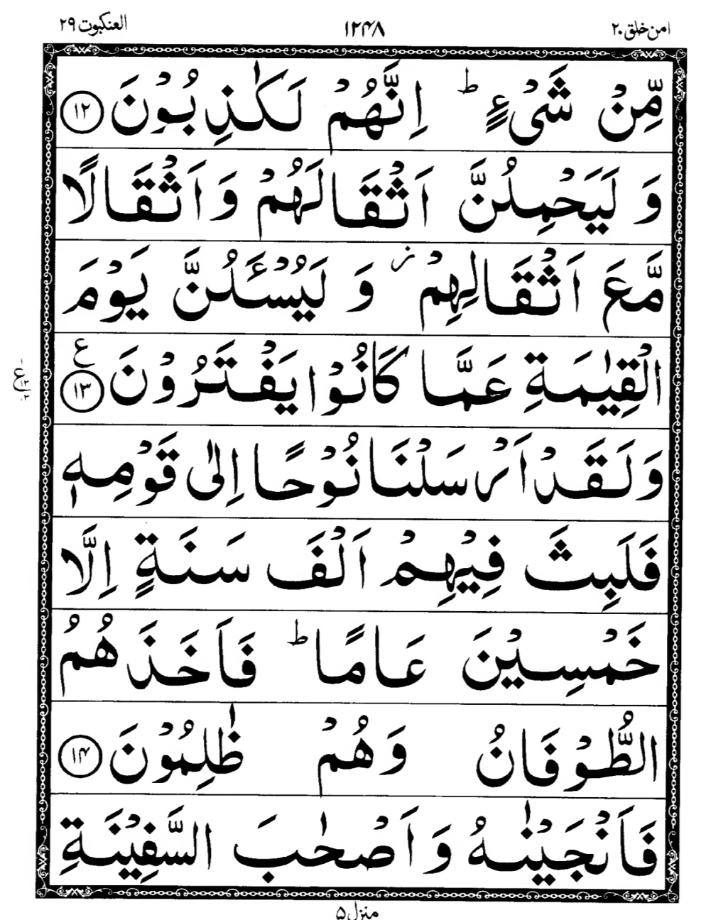 العنكبوت ٢٩ ١٢۴٨ امن خلق ٢٠
مِّنْ شَیْءٍ ؕ اِنَّهُمْ لَكٰذِبُوْنَ ﴿١٢﴾
وَ لَیَحْمِلُنَّ اَثْقَالَهُمْ وَ اَثْقَالًا
مَّعَ اَثْقَالِهِمْ ؗ وَ لَیُسْـَٔلُنَّ یَوْمَ
الْقِیٰمَةِ عَمَّا كَانُوْا یَفْتَرُوْنَ ﴿١٣﴾ ع
وَ لَقَدْ اَرْسَلْنَا نُوْحًا اِلٰى قَوْمِهٖ
فَلَبِثَ فِیْهِمْ اَلْفَ سَنَةٍ اِلَّا
خَمْسِیْنَ عَامًا ؕ فَاَخَذَهُمُ
الطُّوْفَانُ وَ هُمْ ظٰلِمُوْنَ ﴿١۴﴾
فَاَنْجَیْنٰهُ وَ اَصْحٰبَ السَّفِیْنَةِ
منزل ۵